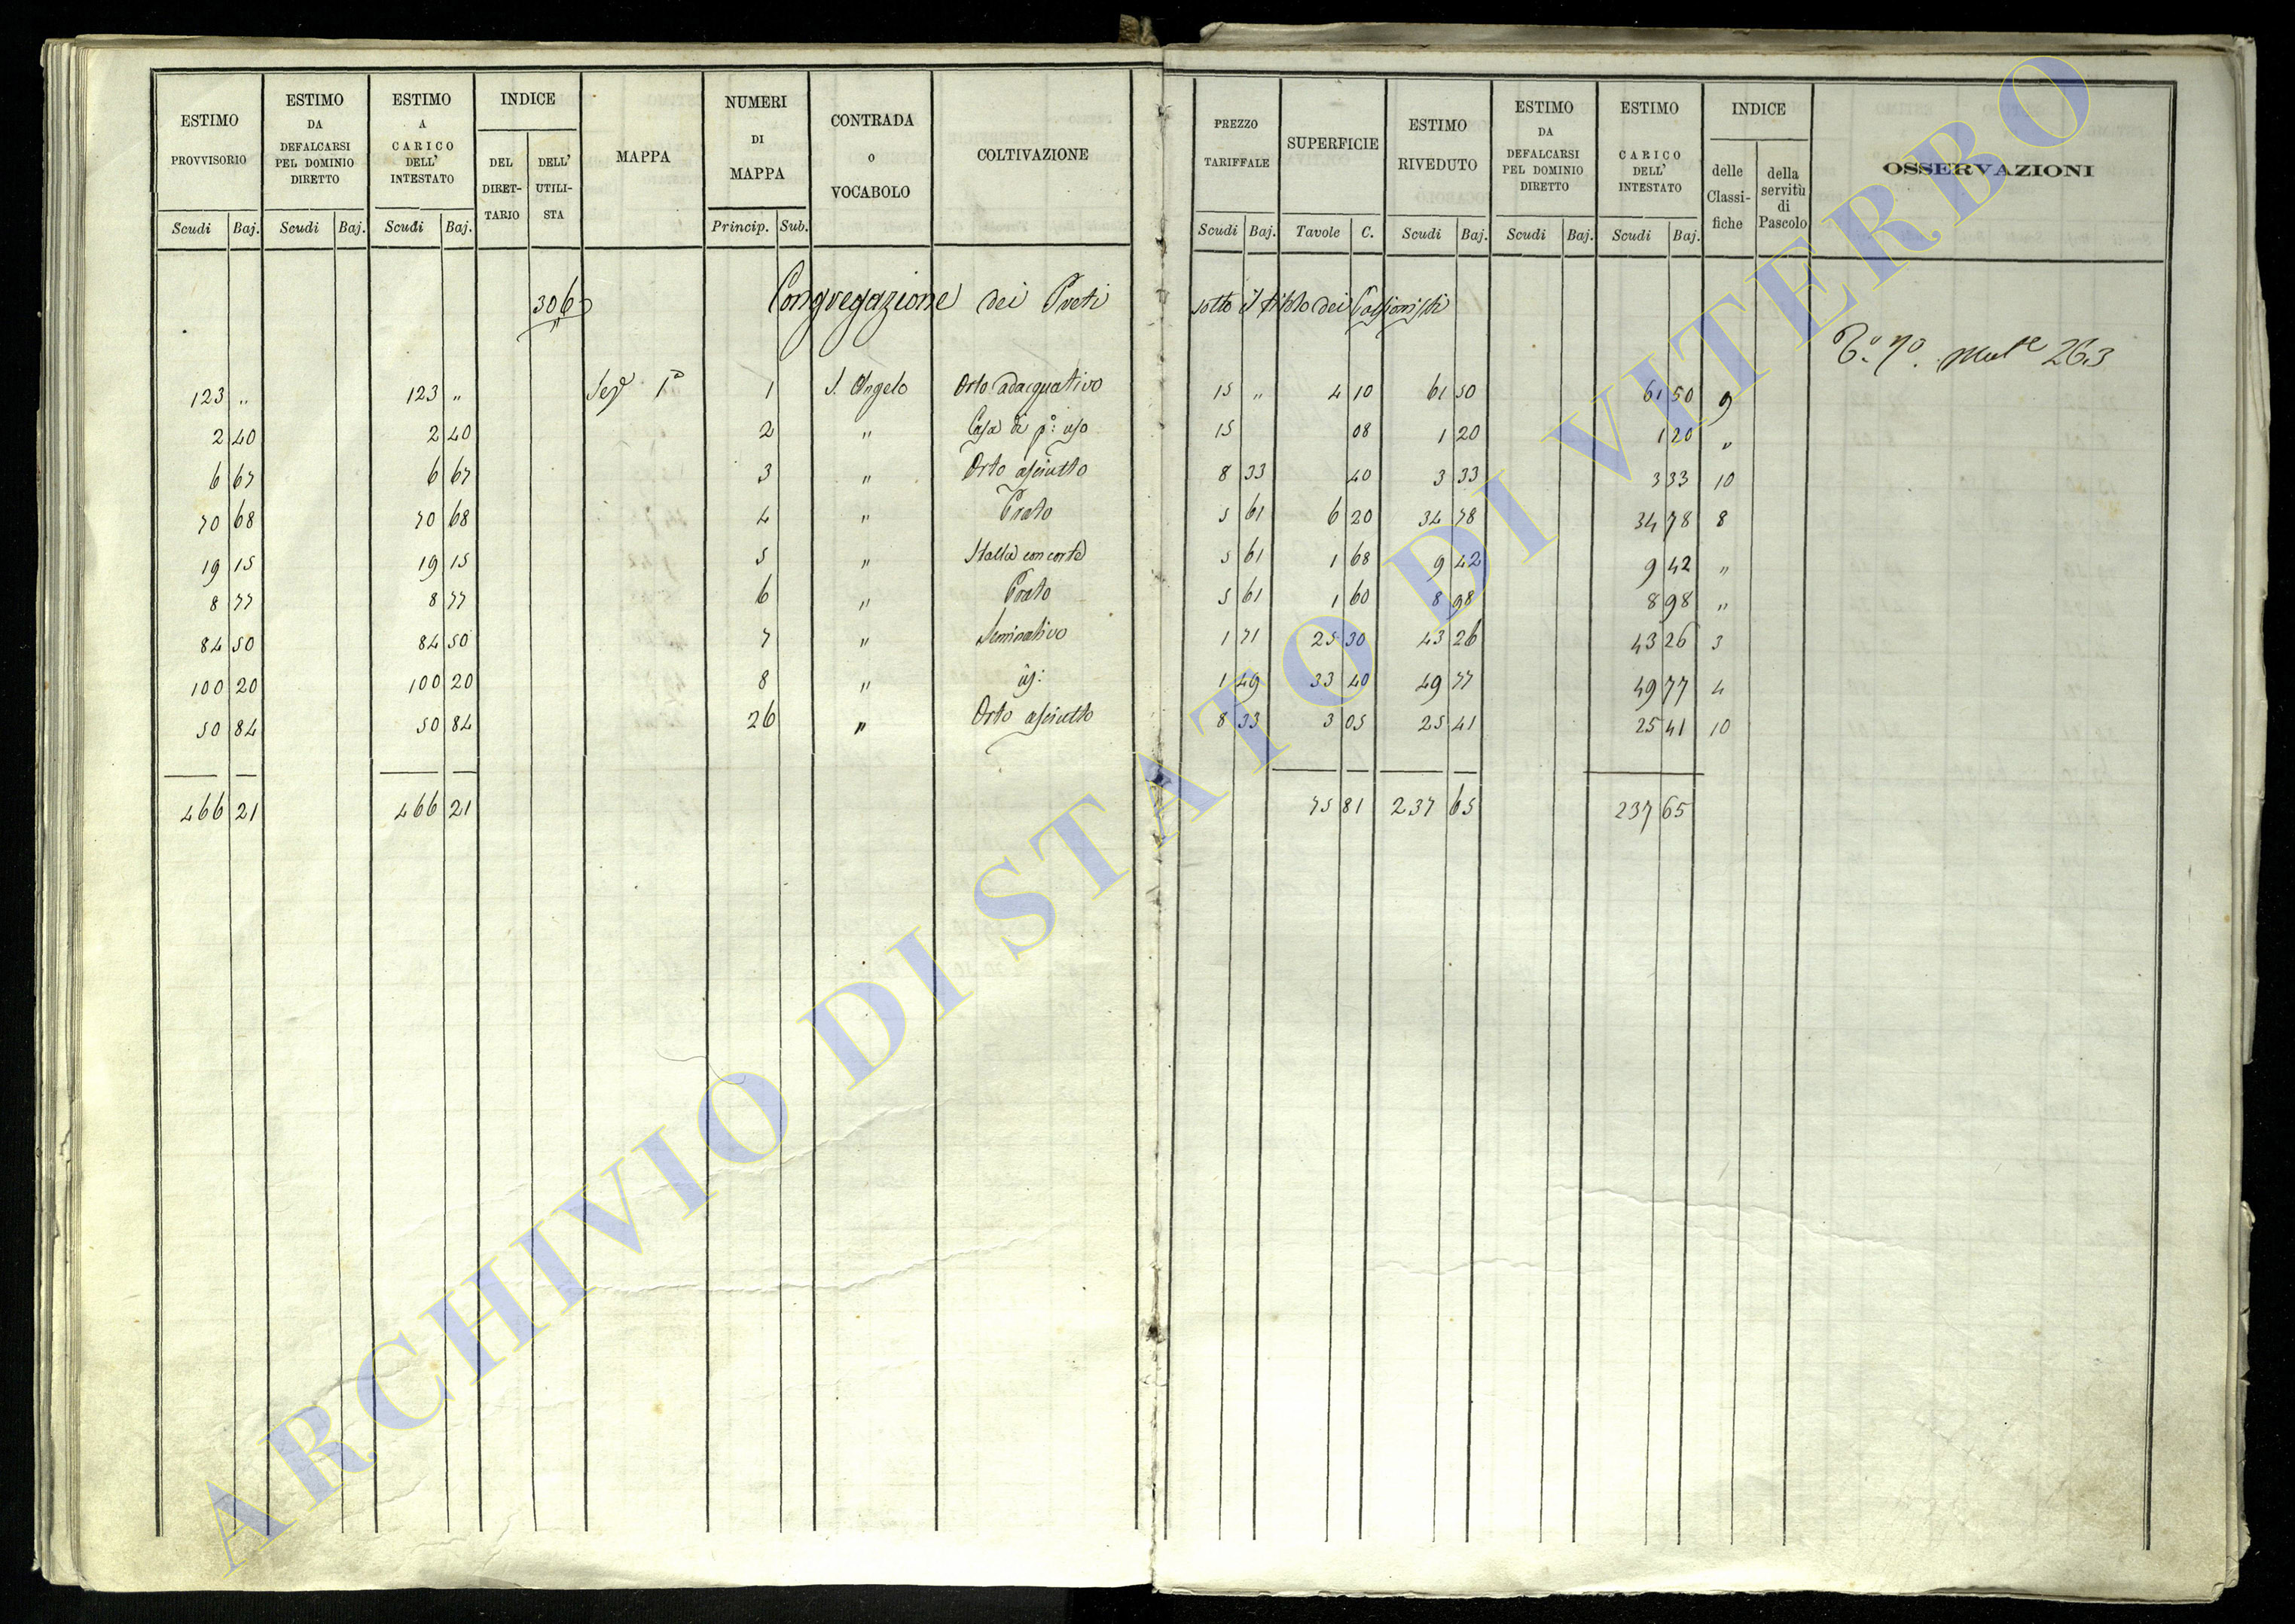 ESTIMO PROVVISORIO | ESTIMO DA DEFALCARSI PEL DOMINIO DIRETTO | ESTIMO A CARICO DELL' INTESTATO | INDICE DEL DIRETTARIO | DELL' UTILISTA | MAPPA | NUMERI DI MAPPA | CONTRADA O VOCABOLO | COLTIVAZIONE | PREZZO TARIFFALE | SUPERFICIE | ESTIMO RIVEDUTO | ESTIMO DA DEFALCARSI PEL DOMINIO DIRETTO | ESTIMO CARICO DELL' INTESTATO | INDICE delle Classifiche | della servitù di Pascolo | OSSERVAZIONI
Scudi | Baj. | Scudi | Baj. | Scudi | Baj. | Princip. | Sub. | Scudi | Baj. | Tavole | C. | Scudi | Baj. | Scudi | Baj. | Scudi | Baj.
306 Congregazione dei Preti sotto il titolo dei Passionisti
T.º 7º 263
123 " | 123 " | Sez.e 1ª | 1 | S. Angelo | Orto adacquativo | 15 " | 4 10 | 61 50 | 61 50 | 9
2 40 | 2 40 | 2 | " | Casa di p.º uso | 15 | 08 | 1 20 | 1 20 | "
6 67 | 6 67 | 3 | " | Orto asciutto | 8 33 | 40 | 3 33 | 3 33 | 10
70 68 | 70 68 | 4 | " | Prato | 5 61 | 6 20 | 34 78 | 34 78 | 8
19 15 | 19 15 | 5 | " | Stalla con corte | 5 61 | 1 68 | 9 42 | 9 42 | "
8 77 | 8 77 | 6 | " | Prato | 5 61 | 1 60 | 8 98 | 8 98 | "
84 50 | 84 50 | 7 | " | Seminativo | 1 71 | 25 30 | 43 26 | 43 26 | 3
100 20 | 100 20 | 8 | " | 1 49 | 33 40 | 49 77 | 49 77 | 4
50 84 | 50 84 | 26 | " | Orto asciutto | 8 33 | 3 05 | 25 41 | 25 41 | 10
466 21 | 466 21 | 75 81 | 237 65 | 237 65
ARCHIVIO DI STATO DI VITERBO